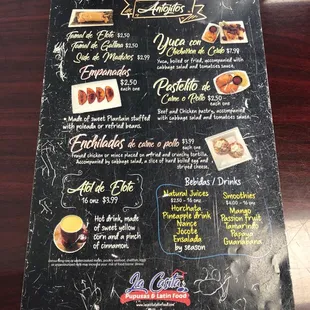 Antojitos
Tamal de Elote $2.50
Tamal de Gallina $2.50
Yuca con
Chicharron de Cerdo $7.99
Yuca, boiled or fried, accompanied with
cabbage salad and tomatoes sauce.
Empanadas
$2.50
each one
• Made of sweet Plantain stuffed
with or refried beans.
Pastelito de
Carne o Pollo $2.50
each one
Beef and Chicken pastry, accompanied
with cabbage salad and tomatoes sauce.
Enchiladas de carne o pollo $3.99
each one
Accompanied by cabbage salad, a slice of hard boiled egg
and striped cheese.
Atol de Elote
16 onz $3.99
Hot drink, made
of sweet yellow
corn and a pinch
of cinnamon.
Bebidas / Drinks
Natural Juices
$2.50 - 16 onz
Horchata
Pineapple drink
Nance
Jocote
Ensalada
by season
Smoothies
$4.00 - 16 onz
Mango
Passion fruit
Tamarindo
Papaya
Guanabana
La Costa
Pupusas & Latin Food